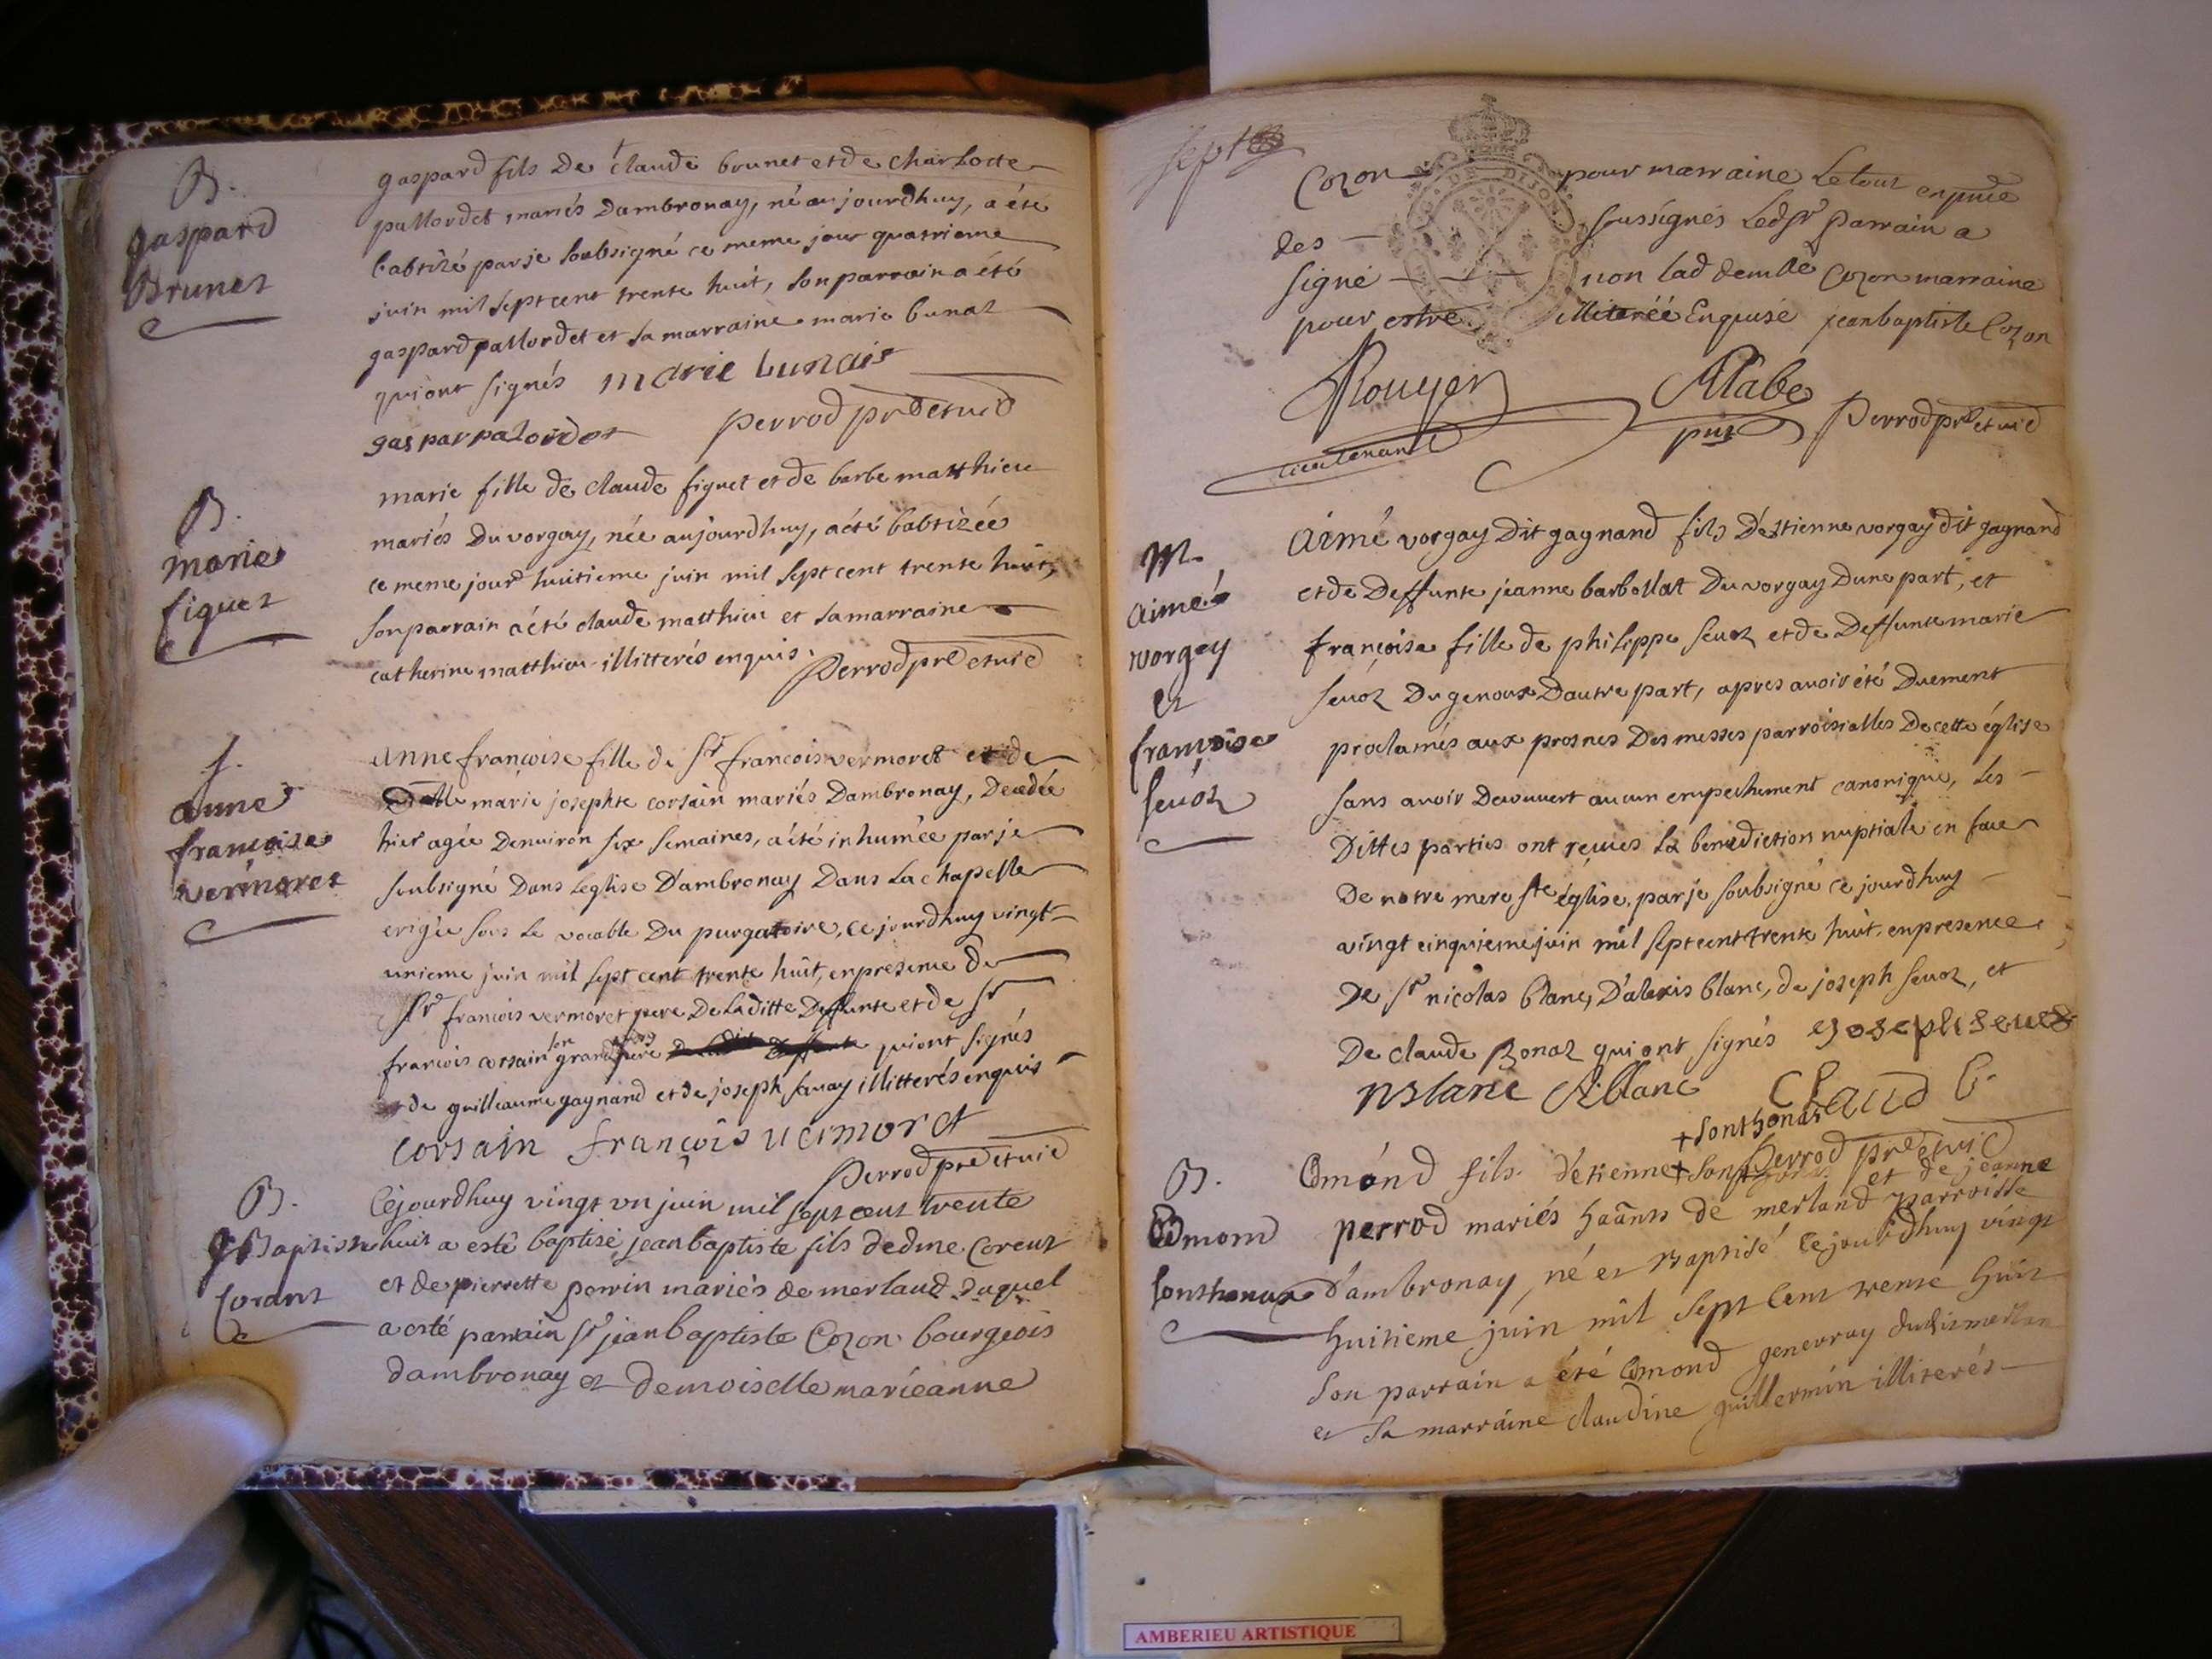 B.
gaspard
Brunet
gaspard fils De claude brunet et de charlotte
pallordet mariés Dambronay, né aujourdhuy, a été
babtizé par je soubsigné ce meme jour quatrieme
juin mil sept cent trente huit, son parrain a été
gaspard pallordet et sa marraine marie bunaz
qui ont signés marie bunais
gaspar palordet perrod prê et vic
B.
marie
figuet
marie fille de claude figuet et de barbe matthieu
mariés Du vorgay, née aujourdhuy, a été babtizée
ce meme jour huitieme juin mil sept cent trente huit,
son parrain a été claude matthieu et sa marraine
catherine matthieu illitterés enquis. Perrod pre et vic
f.
anne
francoise
vermoret
anne françoise fille de Sr francois vermoret et de
Dlle marie josephte corsain mariés Dambronay, Decedée
hier agée Denuiron six semaines, a été inhumée par je
soubsigné Dans Leglise D'ambronay Dans La chapelle
erigée sous Le vocable Du purgatoire, ce jourdhuy vingt
unieme juin mil sept cent trente huit, en presence de
Sr francois vermoret pere De La ditte Deffunte et de Sr
francois corsain son grand pere qui ont signés
et de guilleaume gagnand et de joseph seuay illitterés enquis
corsain françois uermoret
Perrod pre et vic
B.
J Baptiste
Corant
Cejourdhuy vingt un juin mil sept cent trente
huit a esté baptisé jean baptiste fils dedme Coreut
et de pierrette perrin mariés de merlaud duquel
a esté parrain Sr jean baptiste Cozon bourgeois
dambronay et demoiselle marieanne
sept
Cozon pour marraine Le tout en pnce
des soussignés Led Sr parrain a
signé non lad demlle Cozon marraine
pour estre illiterée Enquise jean baptiste Cozon
Rouyer
lieutenant
Alabe
Perrod pre et vic
M.
aimé
vorgey
et
françoise
seuoz
aimé vorgay Dit gagnand fils D'estienne vorgay dit gagnand
et de Deffunte jeanne barbollat Du vorgay Dune part, et
françoise fille de philippe seuoz et de Deffunte marie
seuoz Du genoux Dautre part, apres avoir été Duement
proclamés aux prosnes Des messes parroissialles De cette église
sans avoir Decouvert aucun empechement canonique, Les
Dittes parties ont reçues La benediction nuptiale en face
De notre mere Ste église, par je soubsigné ce jourdhuy
vingt cinquieme juin mil sept cent trente huit, en presence
De Sr nicolas blanc, D'alexis blanc, de joseph seuoz, et
De claude Bonaz qui ont signés joseph seuoz
nblanc Ablanc Claud b.
+ Sonthonas
Perrod pre et vic
B.
Edmond
Sonthonax
Emond fils d'etienne + et de jeanne
perrod mariés haânts de merland parroisse
d'ambronay, né et Baptisé cejourdhuy vingt
huitieme juin mil sept cent trente huit
son parrain a été Emond generray dudit merlan
et sa marraine claudine guillermin illiterés
AMBERIEU ARTISTIQUE